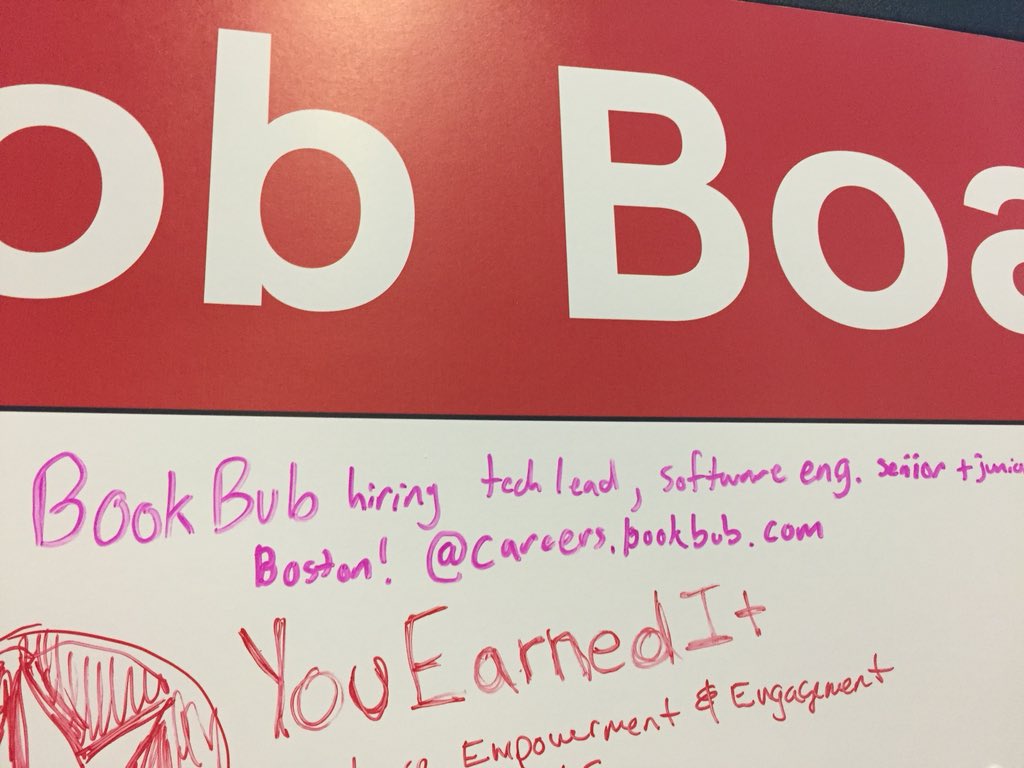 ob Boa
BookBub hiring tech lead, software eng. senior + junior
Boston! @careers.bookbub.com
YouEarnedIt
Empowerment & Engagement